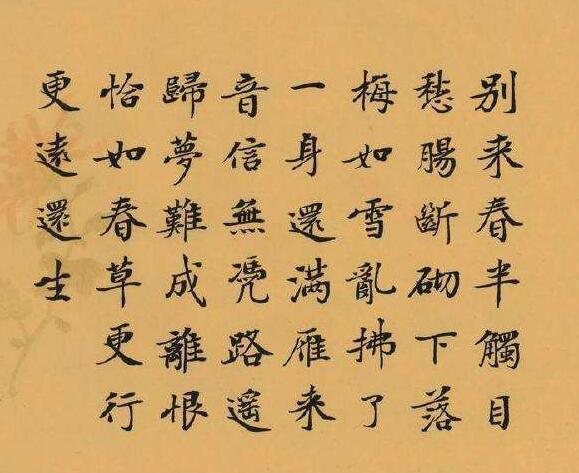 别来春半觸目
愁腸斷砌下落
梅如雪亂拂了
一身還滿雁来
音信無凴路遥
歸夢難成離恨
恰如春草更行
更遠還生